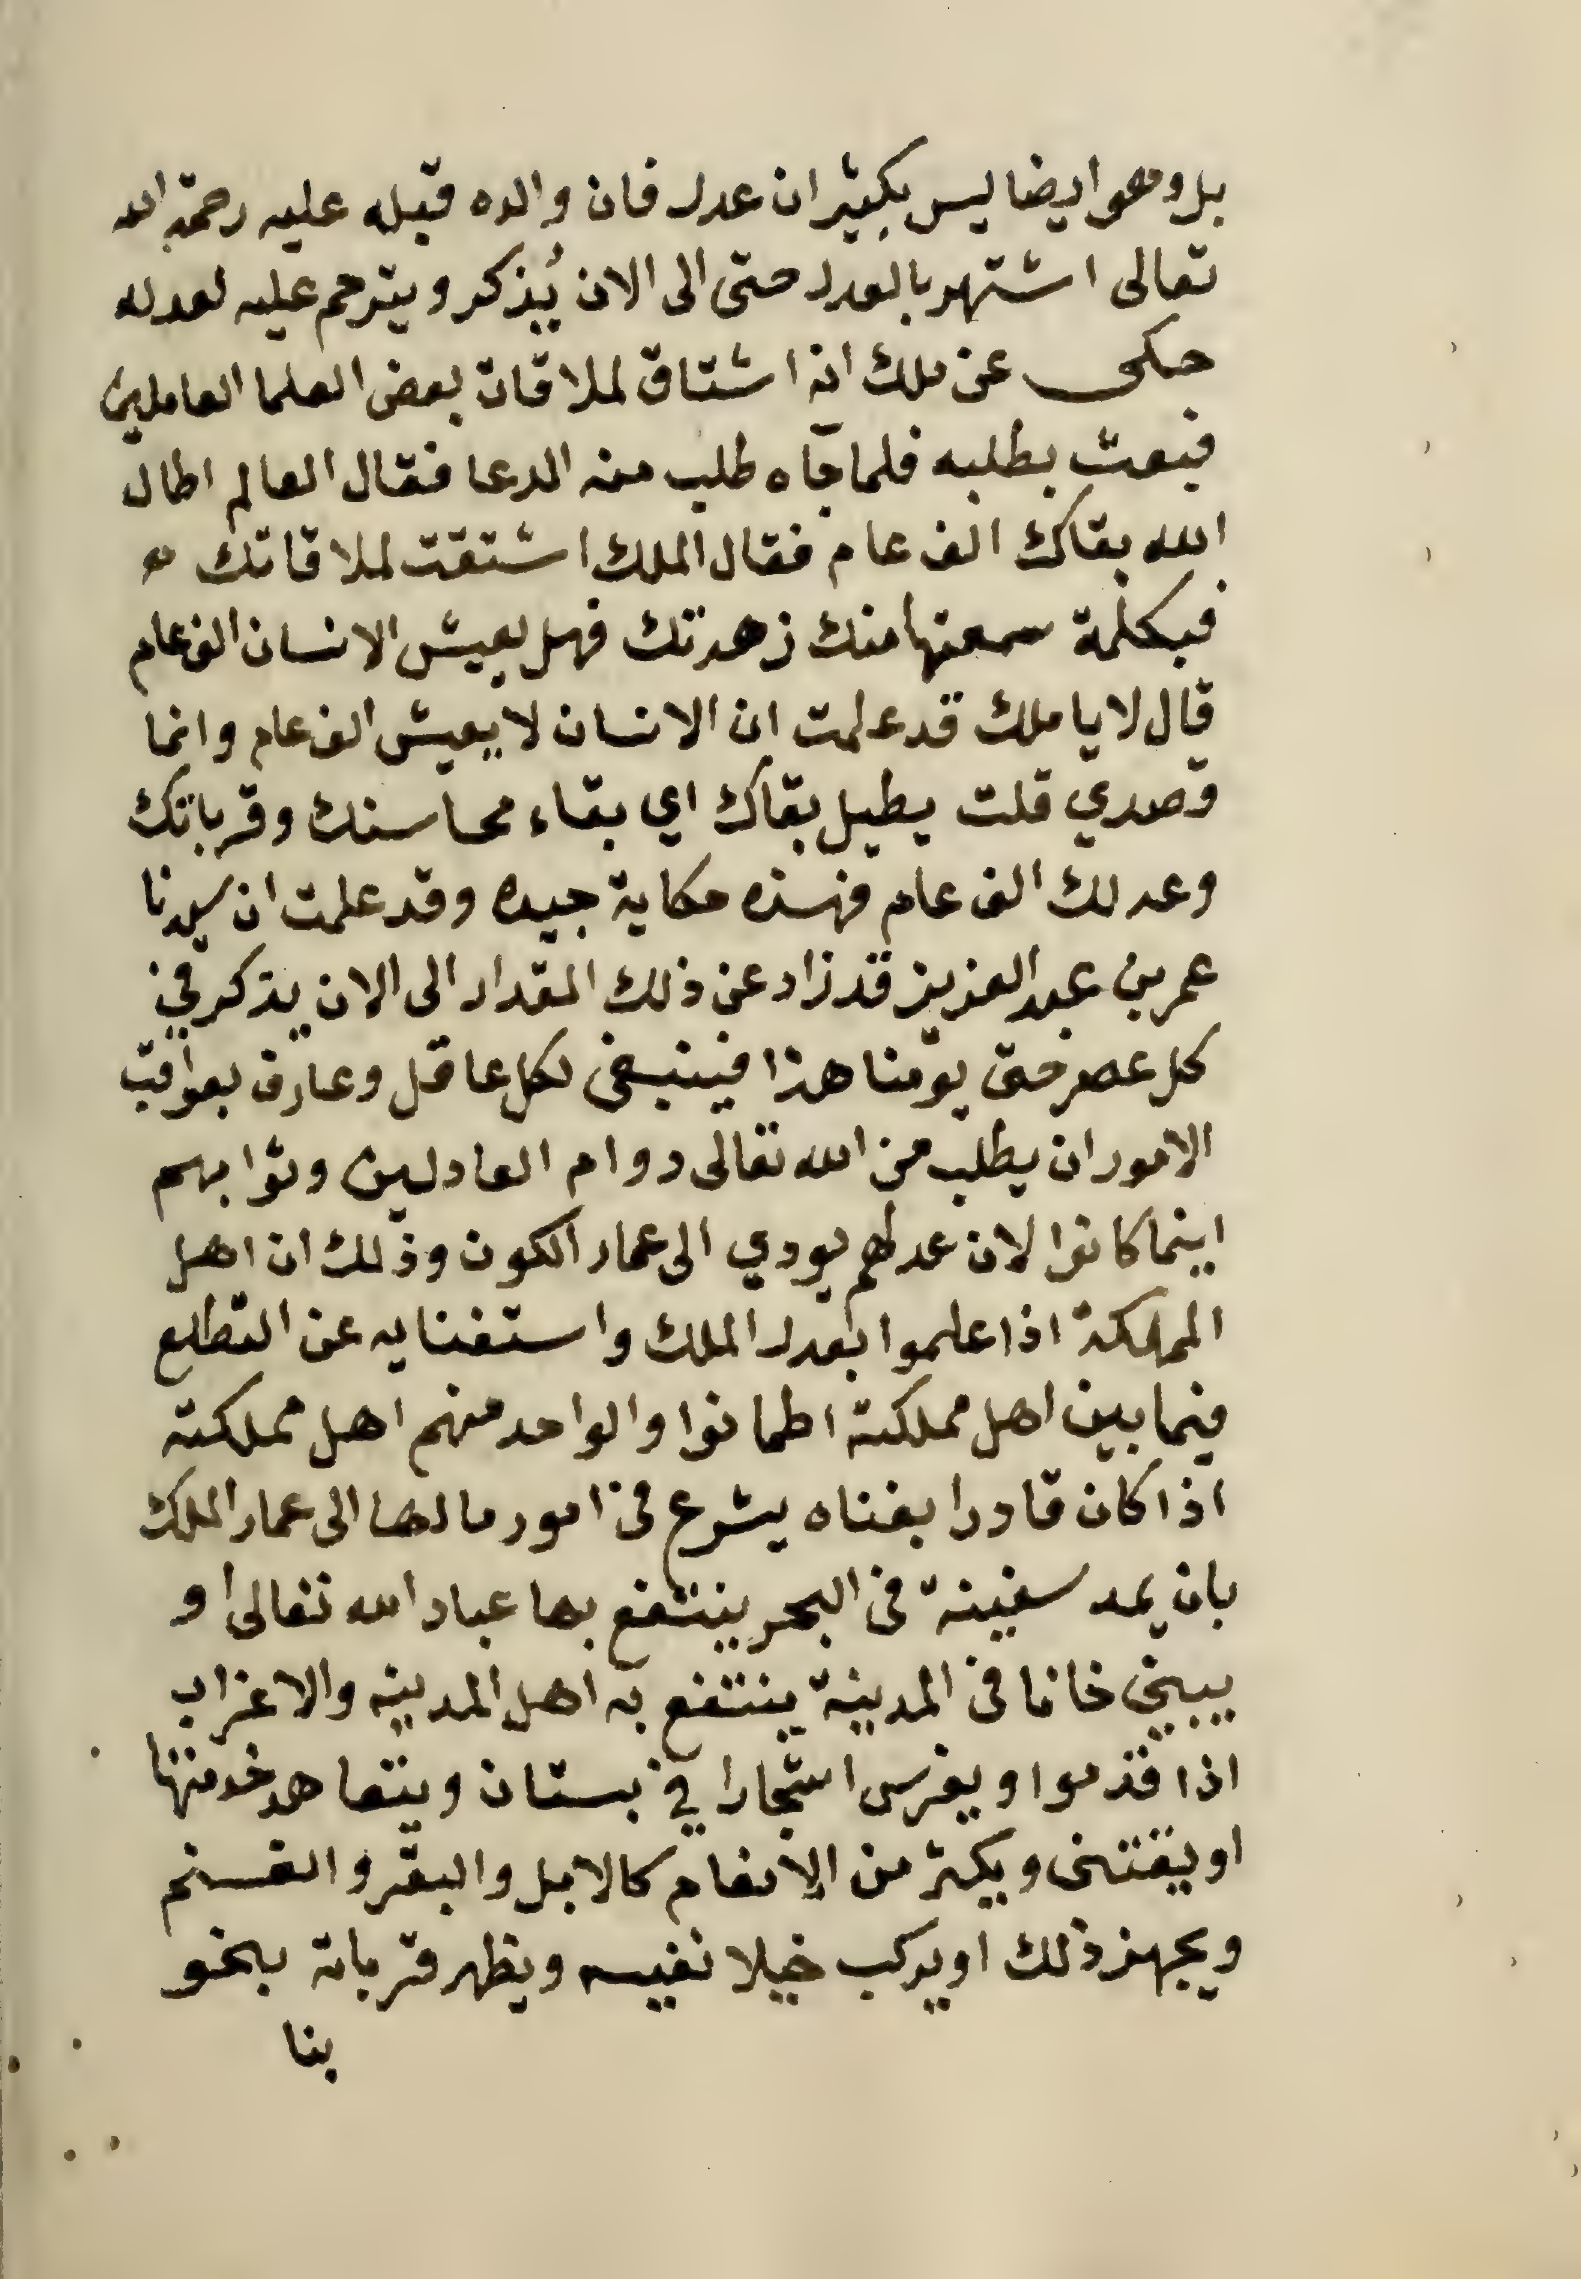 بل وهو ايضا ليس بكثير ان عدل فان والده قبله عليه رحمة الله
تعالى اشتهر بالعدل حتى الى الان يُذكر ويترحم عليه لعدله
حكى عن ملك انه اشتاق لملاقات بعض العلما العاملين
فبعث بطلبه فلما جآه طلب منه الدعا فقال العالم اطال
الله بقاك الف عام فقال الملك اشتقت لملاقاتك
فبكلمة سمعتها منك زهدتك فهل يعيش الانسان الف عام
قال لا يا ملك قد علمت ان الانسان لا يعيش الف عام وانما
قصدي قلت يطيل بقاك اي بقاء محاسنك وقرباتك
وعدلك الف عام فهذه حكاية جيده وقد علمت ان سيدنا
عمر بن عبد العزيز قد زاد عن ذلك المقدار الى الان يذكر في
كل عصر حتى يومنا هذا فينبغي لكل عاقل وعارف بعواقب
الامور ان يطلب من الله تعالى دوام العادلين وثوابهم
اينما كانوا لان عدلهم يودي الى عمار الكون وذلك ان اهل
المملكة اذا علموا بعدل الملك واستغنايه عن التطلع
فيما بين اهل مملكته اطمانوا والواحد منهم اهل مملكته
اذا كان قادرا بغناه يشرع في امور مالها الى عمار الملك
بان يمد سفينة في البحر ينتفع بها عباد الله تعالى او
يبني خانا في المدينة ينتفع به اهل المدينه والاغراب
اذا قدموا ويغرس اشجارا في بستان ويتعاهد خدمتها
او يقتنى ويكثر من الانعام كالابل والبقر والغنم
ويجهز ذلك او يركب خيلا نفيسه ويظهر قرباته بنحو
بنا